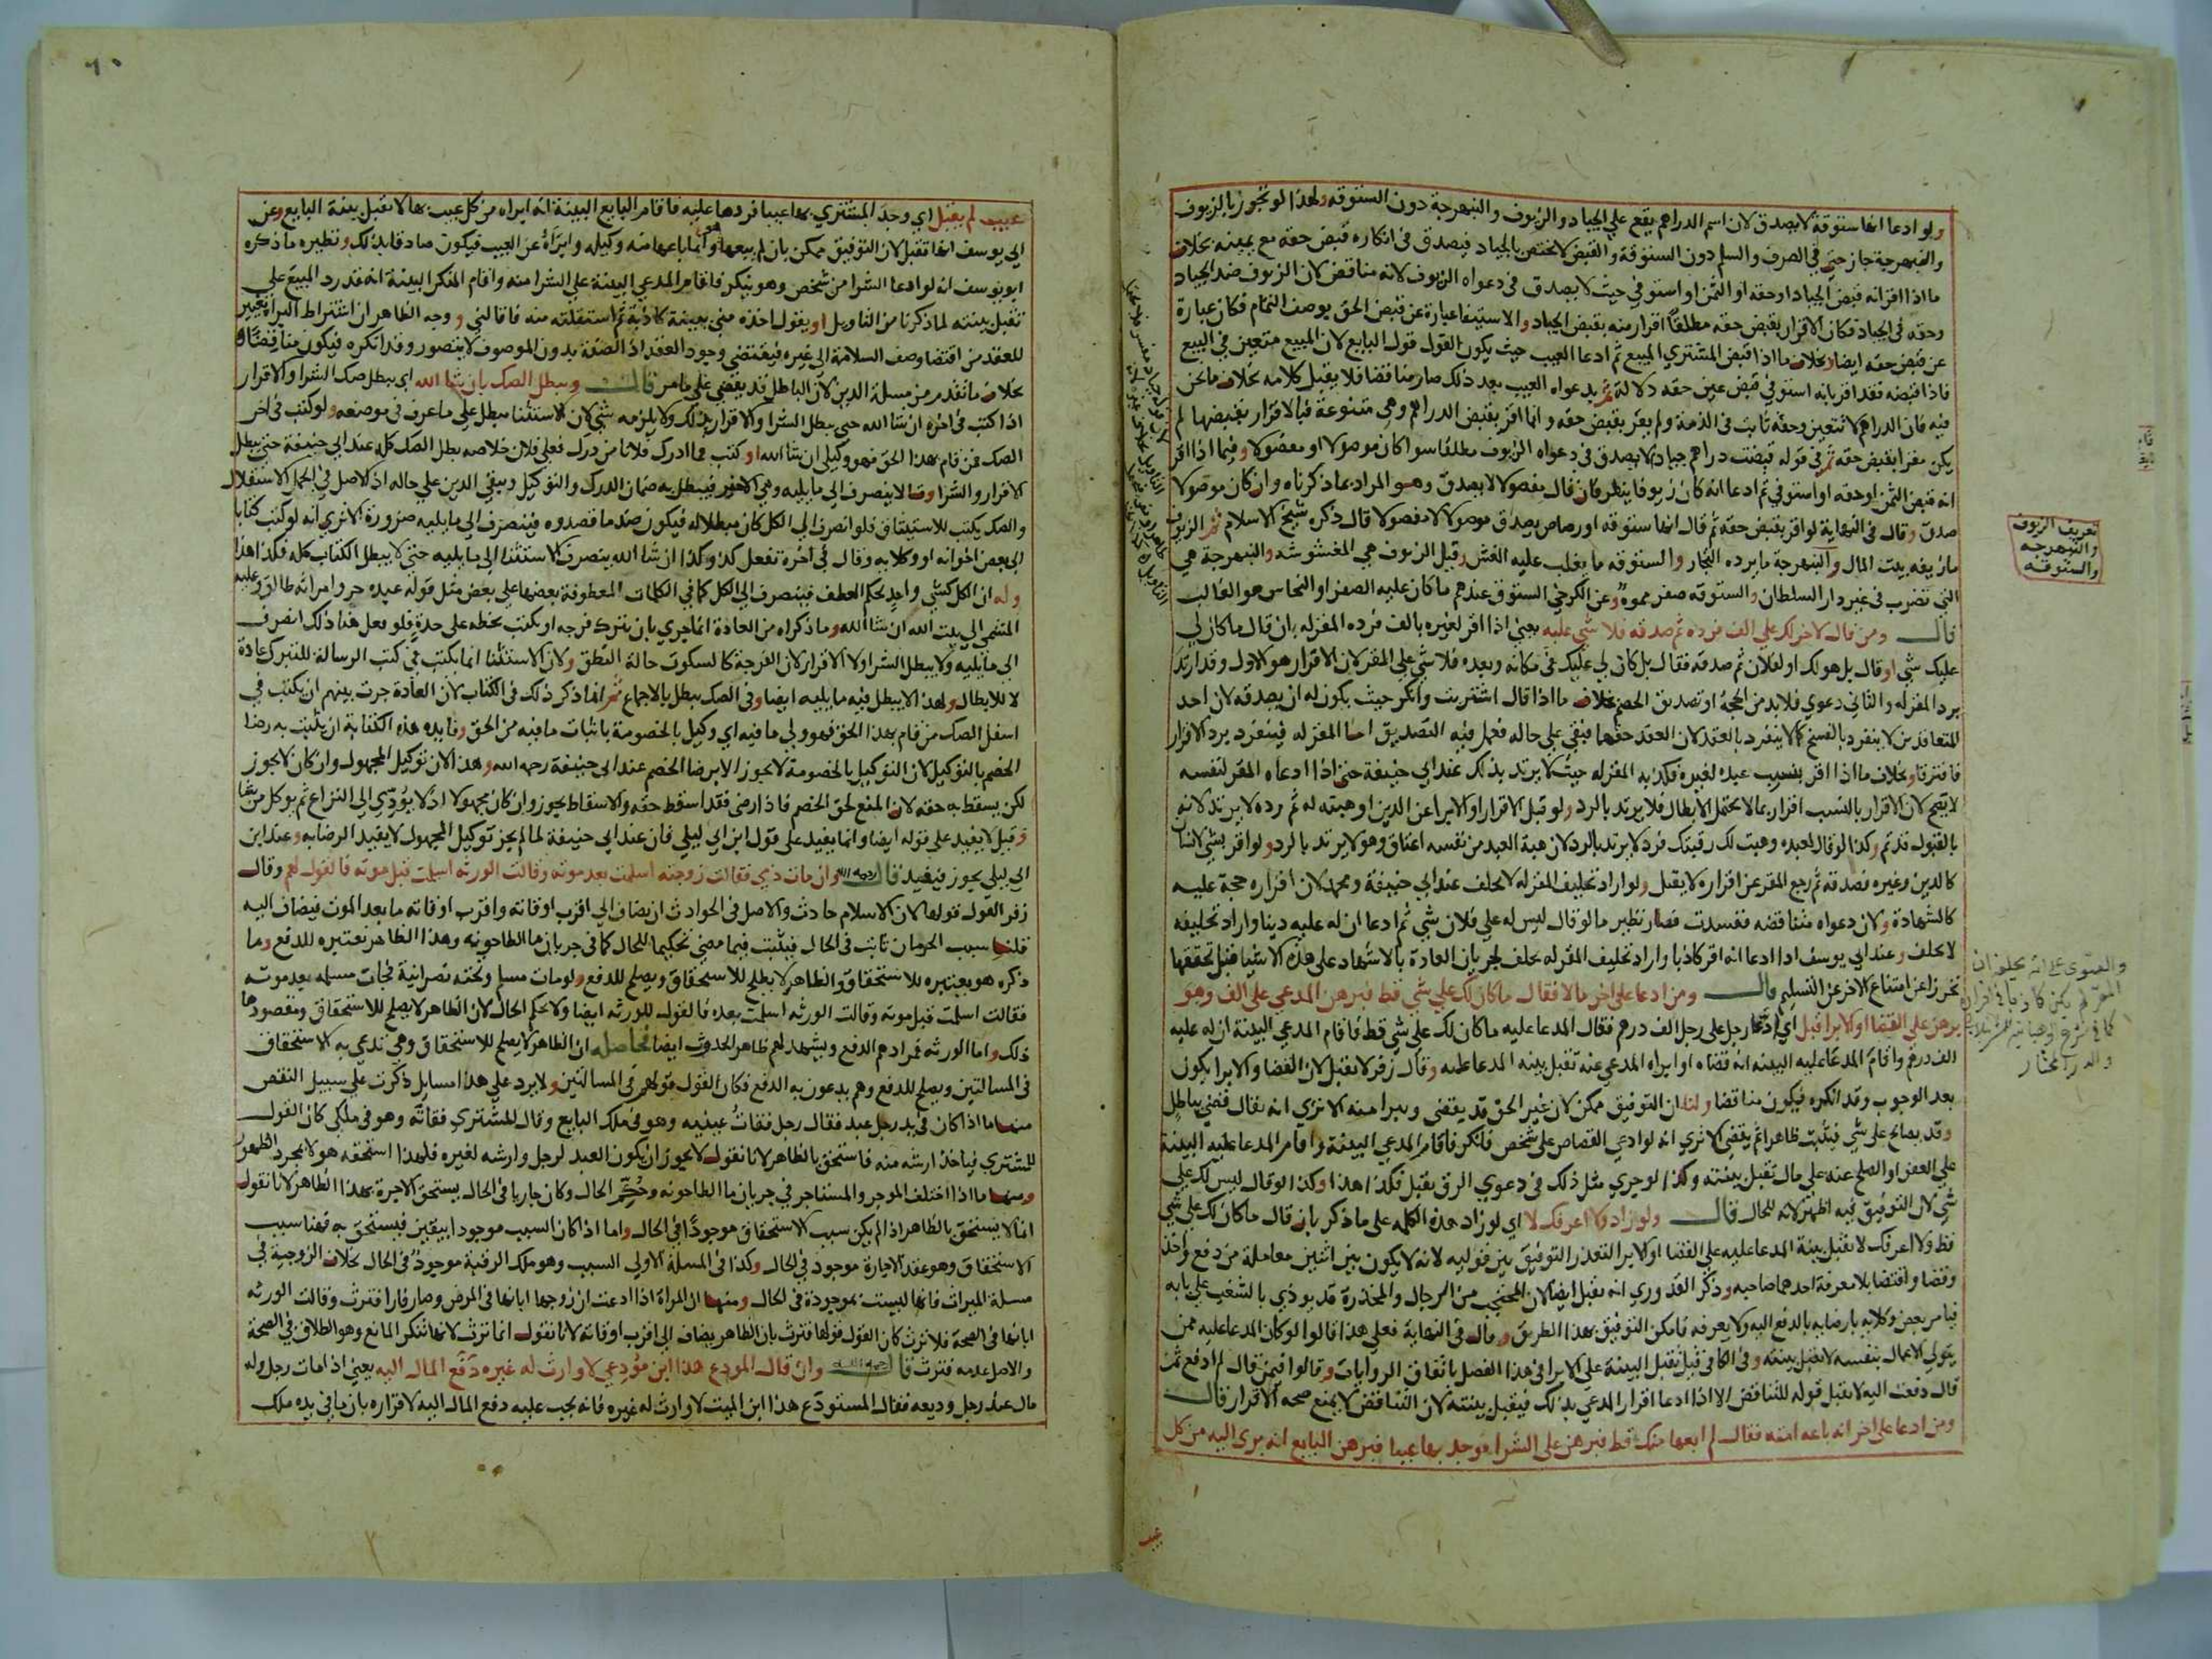 ولو ادعا انها ستوقة لا يصدق لان اسم الدراهم يقع على الجياد والزيوف والنبهرجة دون الستوقه ولهذا لو تجوز بالزيوف
والنبهرجة جاز حتى في الصرف والسلم دون الستوقة والقبض لا يختص بالجياد فيصدق في انكاره قبض حقه مع يمينه بخلاف
ما اذا اقر انه قبض الجياد او حقه او الثمن او استوفي حيث لا يصدق في دعواه الزيوف لانه مناقض لان الزيوف ضد الجياد
وحقه في الجياد فكان الاقرار بقبض حقه مطلقا اقرار منه بقبض الجياد والاستيفا عبارة عن قبض الحق بوصف التمام فكان عبارة
عن قبض حقه ايضا وبخلاف ما اذا قبض المشتري المبيع ثم ادعا العيب حيث يكون القول قول البايع لان المبيع متعين في البيع
فاذا قبضه فقد اقر بانه استوفي قبض عين حقه دلالة ثم بدعواه العيب بعد ذلك صار مناقضا فلا يقبل كلامه بخلاف ما نحن
فيه فان الدراهم لا تتعين وحقه ثابت في الذمة ولم يقر بقبض حقه وانما اقر بقبض الدراهم وهي متنوعة فبالاقرار بقبضها لم
يكن مقرا بقبض حقه ثم في قوله قبضت دراهم جياد لا يصدق في دعواه الزيوف مطلقا سوا كان موصولا او مفصولا وفيما اذا اقر
انه قبض الثمن او حقه او استوفي ثم ادعا انه كان زيوفا ينظر فان قال مفصولا لا يصدق وهو المراد بما ذكرناه وان كان موصولا
صدق وقال في النهاية لو اقر بقبض حقه ثم قال انها ستوقه او رصاص يصدق موصولا لا مفصولا قال ذكره شيخ الاسلام ثم الزيوف
ما زيفه بيت المال والنبهرجة ما يرده التجار والستوقه ما يغلب عليه الغش وقيل الزيوف هي المغشوشه والنبهرجة هي
التي تضرب في غير دار السلطان والستوقه صفر مموه وعن الكرخي الستوق عندهم ما كان عليه الصفر او النحاس هو الغالب
قال ومن قال لاخر لك علي الف فرده ثم صدقه فلا شي عليه يعني اذا اقر لغيره بالف فرده المقر له بان قال ما كان لي
عليك شي او قال بل هو لك او لفلان ثم صدقه فقال بل كان لي عليك في مكانه وبعده فلا شي على المقر لان الاقرار هو الاول وقد ارتد
برد المقر له والثاني دعوي فلا بد من الحجة او تصديق الخصم بخلاف ما اذا قال اشتريت وانكر حيث يكون له ان يصدقه لان احد
المتعاقدين لا ينفرد بالفسخ كما لا ينفرد بالعقد لان العقد حقهما فبقي على حاله فعمل فيه التصديق اما المقر له فينفرد برد الاقرار
فافترقا وبخلاف ما اذا اقر بنسب عبده لغيره فكذبه المقر له حيث لا يرتد بذلك عند ابي حنيفة حتى اذا ادعاه المقر لنفسه
لا يصح لان الاقرار بالنسب اقرار بما لا يحتمل الابطال فلا يرتد بالرد ولو قبل الاقرار او الابرا عن الدين او هبته له ثم رده لا يرتد لانه
بالقبول قد تم وكذا لو قال لعبده وهبت لك رقبتك فرد لا يرتد بالرد لان هبة العبد من نفسه اعتاق وهو لا يرتد بالرد ولو اقر بشي لانسان
كالدين وغيره فصدقه ثم رجع المقر عن اقراره لا يقبل ولو اراد تحليف المقر له لا يحلف عند ابي حنيفة ومحمد لان اقراره حجة عليه
كالشهادة ولان دعواه متناقضه ففسدت فصار نظير ما لو قال ليس له على فلان شي ثم ادعا ان له عليه دينا واراد تحليفه
لا يحلف وعند ابي يوسف اذا ادعا انه اقر كاذبا واراد تحليف المقر له يحلف لجريان العادة بالاشهاد على هذه الاشيا قبل تحققها
تحرزا عن امتناع الاخر عن التسليم قال ومن ادعا على اخر مالا فقال ما كان لك علي شي قط فبرهن المدعي على الف وهو
برهن على القضا او الابرا قبل اي ادعا رجل على رجل الف درهم فقال المدعا عليه ما كان لك علي شي قط فاقام المدعي البينة ان له عليه
الف درهم واقام المدعا عليه البينه انه قضاه او ابراه المدعي عنه تقبل بينه المدعا عليه وقال زفر لا تقبل لان القضا والابرا يكون
بعد الوجوب وقد انكره فيكون مناقضا ولنا ان التوفيق ممكن لان غير الحق قد يقضى ويبرا منه الا ترى انه يقال قضي بباطل
وقد يصالح على شي فيثبت ظاهرا ثم يقضى الا ترى انه لو ادعي القصاص على شخص فانكر فاقام المدعي البينة واقام المدعا عليه البينة
على العفو او الصلح عنه على مال تقبل بينته وكذا لو جري مثل ذلك في دعوي الرق يقبل فكذا هذا وكذا لو قال ليس لك علي
شي لان التوفيق فيه اظهر لانه للحال قال ولو زاد ولا اعرفك لا اي لو زاد هذه الكلمه على ما ذكر بان قال ما كان لك علي شي
قط ولا اعرفك لا تقبل بينة المدعا عليه على القضا او الابرا لتعذر التوفيق بين قوليه لانه لا يكون بين اثنين معاملة من دفع واخذ
وقضا واقتضا بلا معرفة احدهما صاحبه وذكر القدوري انه تقبل ايضا لان المحتجب من الرجال والمخدرة قد يوذي بالشغب على بابه
فيامر بعض وكلايه بارضايه بالدفع اليه ولا يعرفه فامكن التوفيق بهذا الطريق وقال في النهاية فعلى هذا قالوا لو كان المدعا عليه ممن
يتولي الاعمال بنفسه لا تقبل بينته وفي الكافي قيل تقبل البينة على الابرا في هذا الفصل باتفاق الروايات وقالوا فيمن قال لم ادفع ثم
قال دفعت اليه لا يقبل قوله للتناقض الا اذا ادعا اقرار المدعي بذلك فيقبل بينته لان التناقض لا يمنع صحه الاقرار قال
ومن ادعا على اخر انه باعه امته فقال لم ابعها منك قط فبرهن على الشرا فوجد بها عيبا فبرهن البايع انه بري اليه من كل
عيب
تعريف الزيوف
والنبهرجه
والستوقه
والفتوى على انه يحلف ان
المقر لم يكن كاذبا في اقراره
والدر المختار
٦٠
عيب لم يقبل اي وجد المشتري بها عيبا فردها عليه فاقام البايع البينة انه ابراه من كل عيب بها لا تقبل بينة البايع وعن
ابي يوسف انها تقبل لان التوفيق ممكن بان لم يبيعها هو وانما باعها منه وكيله وابراه عن العيب فيكون صادقا بذلك ونظيره ما ذكره
ابو يوسف انه لو ادعا الشرا من شخص وهو ينكر فاقام المدعي البينة على الشرا منه واقام المنكر البينة انه قد رد المبيع علي
تقبل بينته لما ذكرنا من التاويل او يقول اخذه مني ببينة كاذبة ثم استقلته منه فاقالني ووجه الظاهر ان اشتراط البراة تغيير
للعقد من اقتضا وصف السلامة الى غيره فيقتضي وجود العقد اذ الصفة بدون الموصوف لا يتصور وقد انكره فيكون مناقضا
بخلاف ما تقدم من مسلة الدين لان الباطل قد يقضي على ما مر قال ويبطل الصك بان شا الله اي يبطل صك الشرا والاقرار
اذا كتب في اخره ان شا الله حتى يبطل الشرا والاقرار بذلك ولا يلزمه شي لان الاستثنا مبطل على ما عرف في موضعه ولو كتب في اخر
الصك من قام بهذا الحق فهو وكيلي ان شا الله او كتب فما ادرك فلانا من درك فعلى فلان خلاصه بطل الصك كله عند ابي حنيفة حتى يبطل
الاقرار والشرا وقالا ينصرف الى ما يليه وهي الاخير فيبطل به ضمان الدرك والتوكيل ويبقي الدين على حاله اذ الاصل في الجمل الاستقلال
والصك يكتب للاستيثاق فلو انصرف الى الكل كان مبطلا له فيكون ضد ما قصدوه فينصرف الى ما يليه ضرورة الا ترى انه لو كتب كتابا
الى بعض اخوانه او وكلايه وقال في اخره تفعل كذا وكذا ان شا الله ينصرف الاستثنا الى ما يليه حتى لا يبطل الكتاب كله فكذا هذا
وله ان الكل كشي واحد بحكم العطف فينصرف الى الكل كما في الكلمات المعطوفة بعضها على بعض مثل قوله عبده حر وامراته طالق وعليه
المشي الى بيت الله ان شا الله وما ذكراه من العادة انما جري بان يترك فرجه او يكتب بخطه على حدة فلو فعل هنا ذلك انصرف
الى ما يليه ولا يبطل الشرا ولا الاقرار لان الفرجة كالسكوت حالة النطق ولان الاستثنا انما يكتب في كتب الرسالة للتبرك عادة
لا للابطال ولهذا لا يبطل فيه ما يليه ايضا وفي الصك يبطل بالاجماع ثم انما ذكر ذلك في الكتاب لان العادة جرت بينهم ان يكتب في
اسفل الصك من قام بهذا الحق فهو ولي ما فيه اي وكيل بالخصومة باثبات ما فيه من الحق وفايده هذه الكتابة ان يثبت به رضا
الخصم بالتوكيل لان التوكيل بالخصومة لا يجوز الا برضا الخصم عند ابي حنيفة رحمه الله وهذا لان توكيل المجهول وان كان لا يجوز
لكن يسقط به حقه لان المنع لحق الخصم فاذا رضي فقد اسقط حقه والاسقاط يجوز وان كان مجهولا اذ لا يؤدي الى النزاع ثم يوكل من شا
وقيل لا يفيد على قوله ايضا وانما يفيد على قول ابن ابي ليلى فان عند ابي حنيفة لما لم يجز توكيل المجهول لا يفيد الرضا به وعند ابن
ابي ليلى يجوز فيفيد قال رحمه الله وان مات ذمي فقالت زوجته اسلمت بعد موته وقالت الورثه اسلمت قبل موته فالقول لهم وقال
زفر القول قولها لان الاسلام حادث والاصل في الحوادث ان يضاف الى اقرب اوقاته واقرب اوقاته ما بعد الموت فيضاف اليه
قلنا سبب الحرمان ثابت في الحال فيثبت فيما مضي تحكيما للحال كما في جريان ما الطاحونه وهذا الظاهر نعتبره للدفع وما
ذكره هو يعتبره للاستحقاق والظاهر لا يصلح للاستحقاق ويصلح للدفع ولو مات مسلم وتحته نصرانية فجات مسلمه بعد موته
فقالت اسلمت قبل موته وقالت الورثه اسلمت بعده فالقول للورثه ايضا ولا يحكم الحال لان الظاهر لا يصلح للاستحقاق ومقصودها
ذلك واما الورثه فمرادهم الدفع ويشهد لهم ظاهر الحدوث ايضا فحاصله ان الظاهر لا يصلح للاستحقاق وهي تدعي به الاستحقاق
في المسالتين ويصلح للدفع وهم يدعون به الدفع فكان القول قولهم في المسالتين ولا يرد على هذا مسايل ذكرت على سبيل النقض
منها ما اذا كان في يد رجل عبد فقال رجل فقات عينيه وهو في ملك البايع وقال المشتري فقاته وهو في ملكي كان القول
للمشتري فياخذ ارشه منه فاستحق بالظاهر لانا نقول لا يجوز ان يكون العبد لرجل وارشه لغيره فلهذا استحقه هو لا بمجرد الظهور
ومنها ما اذا اختلف الموجر والمستاجر في جريان ما الطاحونه وحكم الحال وكان جاريا في الحال يستحق الاجرة بهذا الظاهر لانا نقول
انما لا يستحق بالظاهر اذا لم يكن سبب الاستحقاق موجودا في الحال واما اذا كان السبب موجودا بيقين فيستحق به فهنا سبب
الاستحقاق وهو عقد الاجارة موجود في الحال وكذا في المسلة الاولى السبب وهو ملك الرقبة موجود في الحال بخلاف الزوجية في
مسلة الميراث فانها ليست بموجودة في الحال ومنها ان المراة اذا ادعت ان زوجها ابانها في المرض وصار فارا فترث وقالت الورثه
ابانها في الصحة فلا ترث كان القول قولها فترث بان الظاهر يضاف الى اقرب اوقاته لانا نقول انما ترث لانها تنكر المانع وهو الطلاق في الصحة
والاصل عدمه فترث قال رحمه الله وان قال المودع هذا ابن مودعي لا وارث له غيره دفع المال اليه يعني اذا مات رجل وله
مال عند رجل وديعه فقال المستودع هذا ابن الميت لا وارث له غيره فانه يجب عليه دفع المال اليه لاقراره بان ما في يده ملك